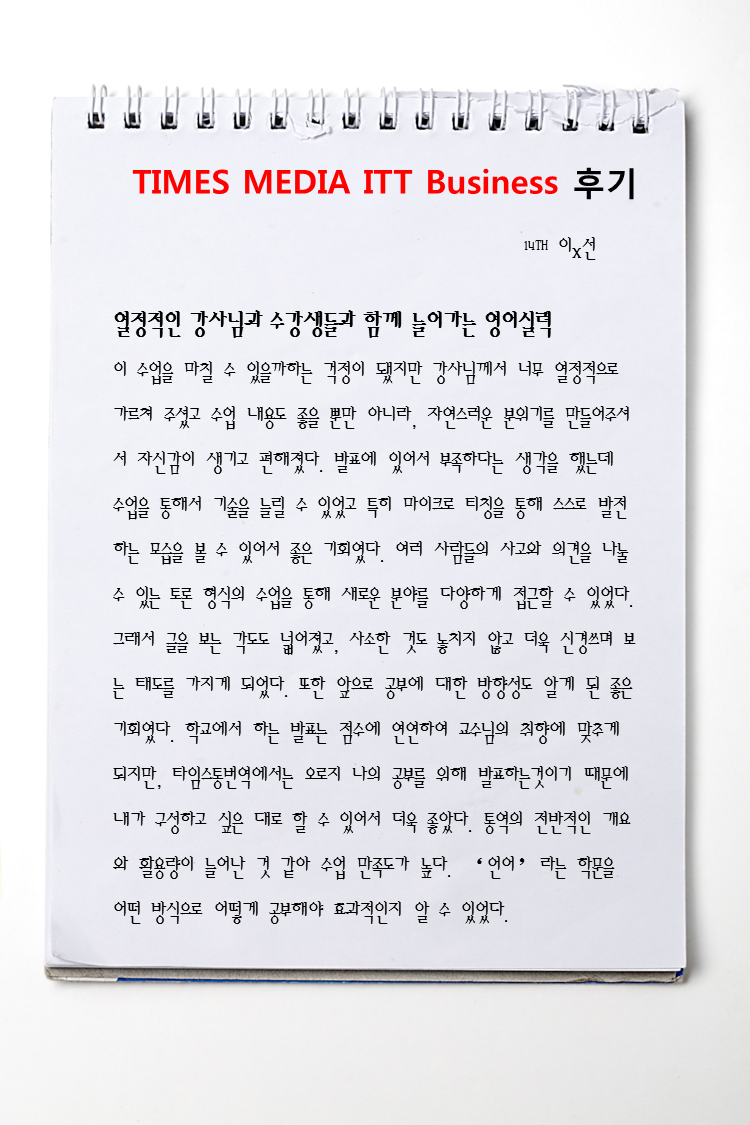 TIMES MEDIA ITT Business 후기
14TH 이x선
열정적인 강사님과 수강생들과 함께 늘어가는 영어실력
이 수업을 마칠 수 있을까하는 걱정이 됐지만 강사님께서 너무 열정적으로
가르쳐 주셨고 수업 내용도 좋을 뿐만 아니라, 자연스러운 분위기를 만들어주셔
서 자신감이 생기고 편해졌다. 발표에 있어서 부족하다는 생각을 했는데
수업을 통해서 기술을 늘릴 수 있었고 특히 마이크로 티칭을 통해 스스로 발전
하는 모습을 볼 수 있어서 좋은 기회였다. 여러 사람들의 사고와 의견을 나눌
수 있는 토론 형식의 수업을 통해 새로운 분야를 다양하게 접근할 수 있었다.
그래서 글을 보는 각도도 넓어졌고, 사소한 것도 놓치지 않고 더욱 신경쓰며 보
는 태도를 가지게 되었다. 또한 앞으로 공부에 대한 방향성도 알게 된 좋은
기회였다. 학교에서 하는 발표는 점수에 연연하여 교수님의 취향에 맞추게
되지만, 타임스통번역에서는 오로지 나의 공부를 위해 발표하는것이기 때문에
내가 구성하고 싶은 대로 할 수 있어서 더욱 좋았다. 통역의 전반적인 개요
와 활용량이 늘어난 것 같아 수업 만족도가 높다. ‘언어’ 라는 학문을
어떤 방식으로 어떻게 공부해야 효과적인지 알 수 있었다.